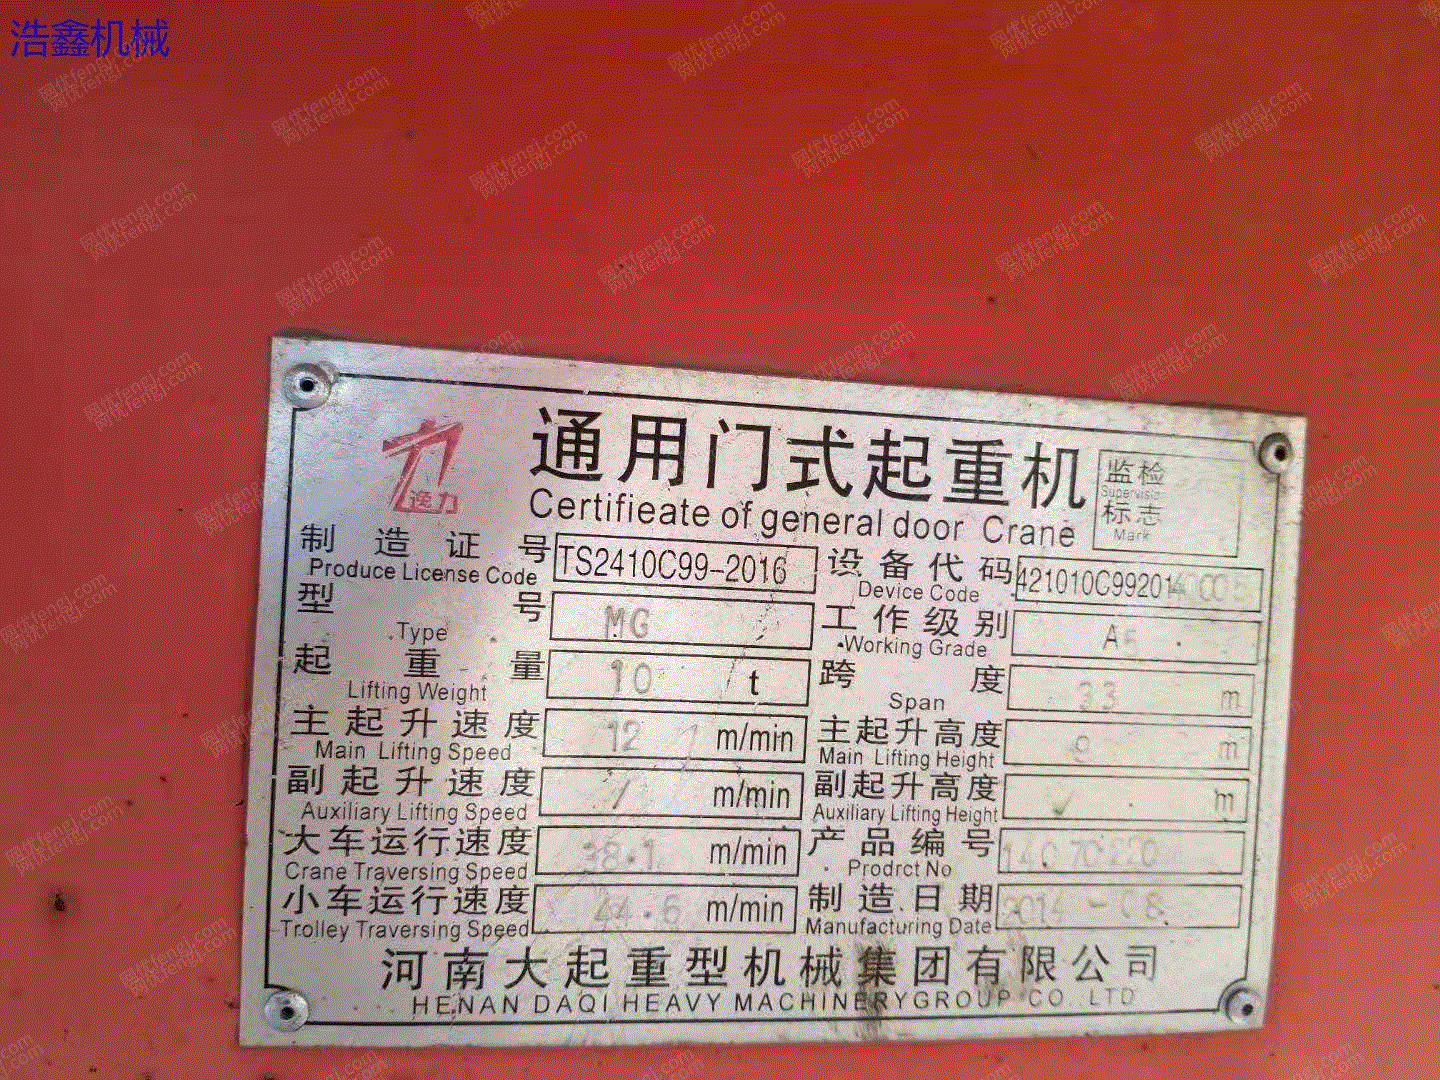 浩鑫机械
通用门式起重机
Certifieate of general door Crane
逸力
监检
Supervisio
标志
Mark
制造证号 TS2410C99-2016 设备代码 421010C992014
Produce License Code Device Code
型号 MG 工作级别 A5
Type Working Grade
起重量 10 t 跨度 33 m
Lifting Weight Span
主起升速度 12 m/min 主起升高度 9 m
Main Lifting Speed Main Lifting Height
副起升速度 / m/min 副起升高度 m
Auxiliary Lifting Speed Auxiliary Lifting Height
大车运行速度 38.1 m/min 产品编号
Crane Traversing Speed Prodrct No
小车运行速度 44.6 m/min 制造日期 2014-08
Trolley Traversing Speed Manufacturing Date
河南大起重型机械集团有限公司
HENAN DAQI HEAVY MACHINERYGROUP CO.LTD
网优fengj.com